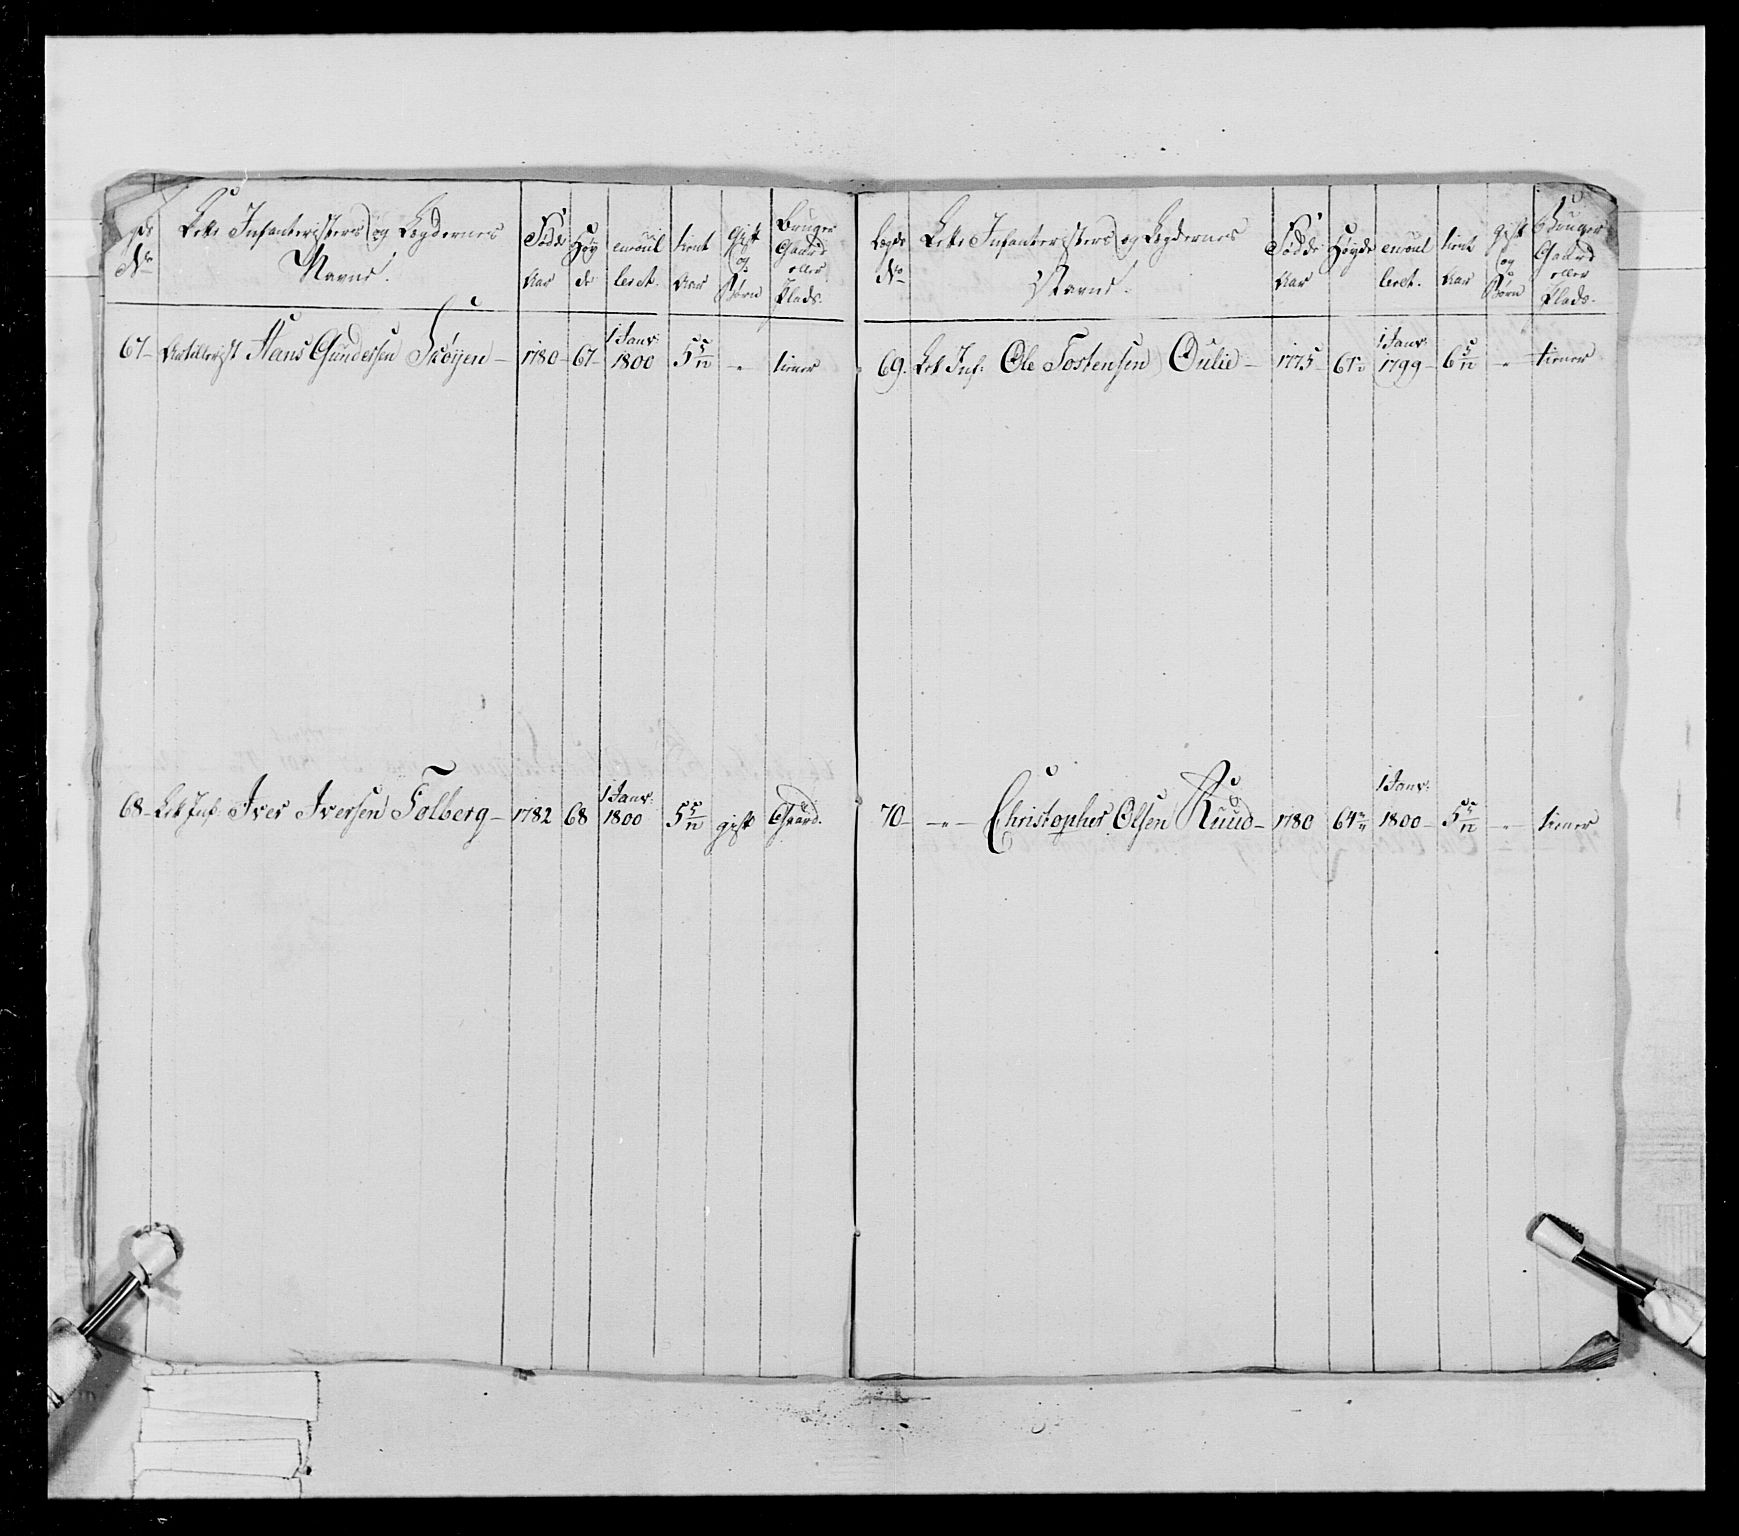 Lette Infanteristers og Lægdernes
Navne.
No
Fødde Aar
Høyde
enroulleret.
tient Aar
gift og Børn
Bruger Gaard eller Plads.
67 Artillerist Hans Gundersen 1780 67 1 Janv: 1800 5 5/12 " tiener
68 Let Inf: Iver Iversen Tolberg 1782 68 1 Janv: 1800 5 5/12 gift Gaard.
Lægds No
Lette Infanteristers og Lægdernes
Navne.
Fødde Aar
Høyde
enroulleret.
tient Aar
gift og Børn
Bruger Gaard eller Plads.
69. Let Inf: Ole Tostensen Oulie 1775 1 Janv: 1799 6 5/12 " tiener
70 " Christopher Olsen Ruud 1780 64 1 Janv: 1800 5 5/12 " tiener